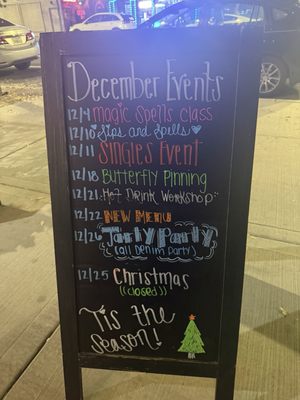 December Events
12/4 magic Spells class
12/10 Sips and Spells
12/11 Singles Event
12/18 Butterfly Pinning
12/21 Hot Drink Workshop
12/22 NEW MENU
12/26 Party
(all Denim party)
12/25 Christmas
((closed))
'Tis the
season!